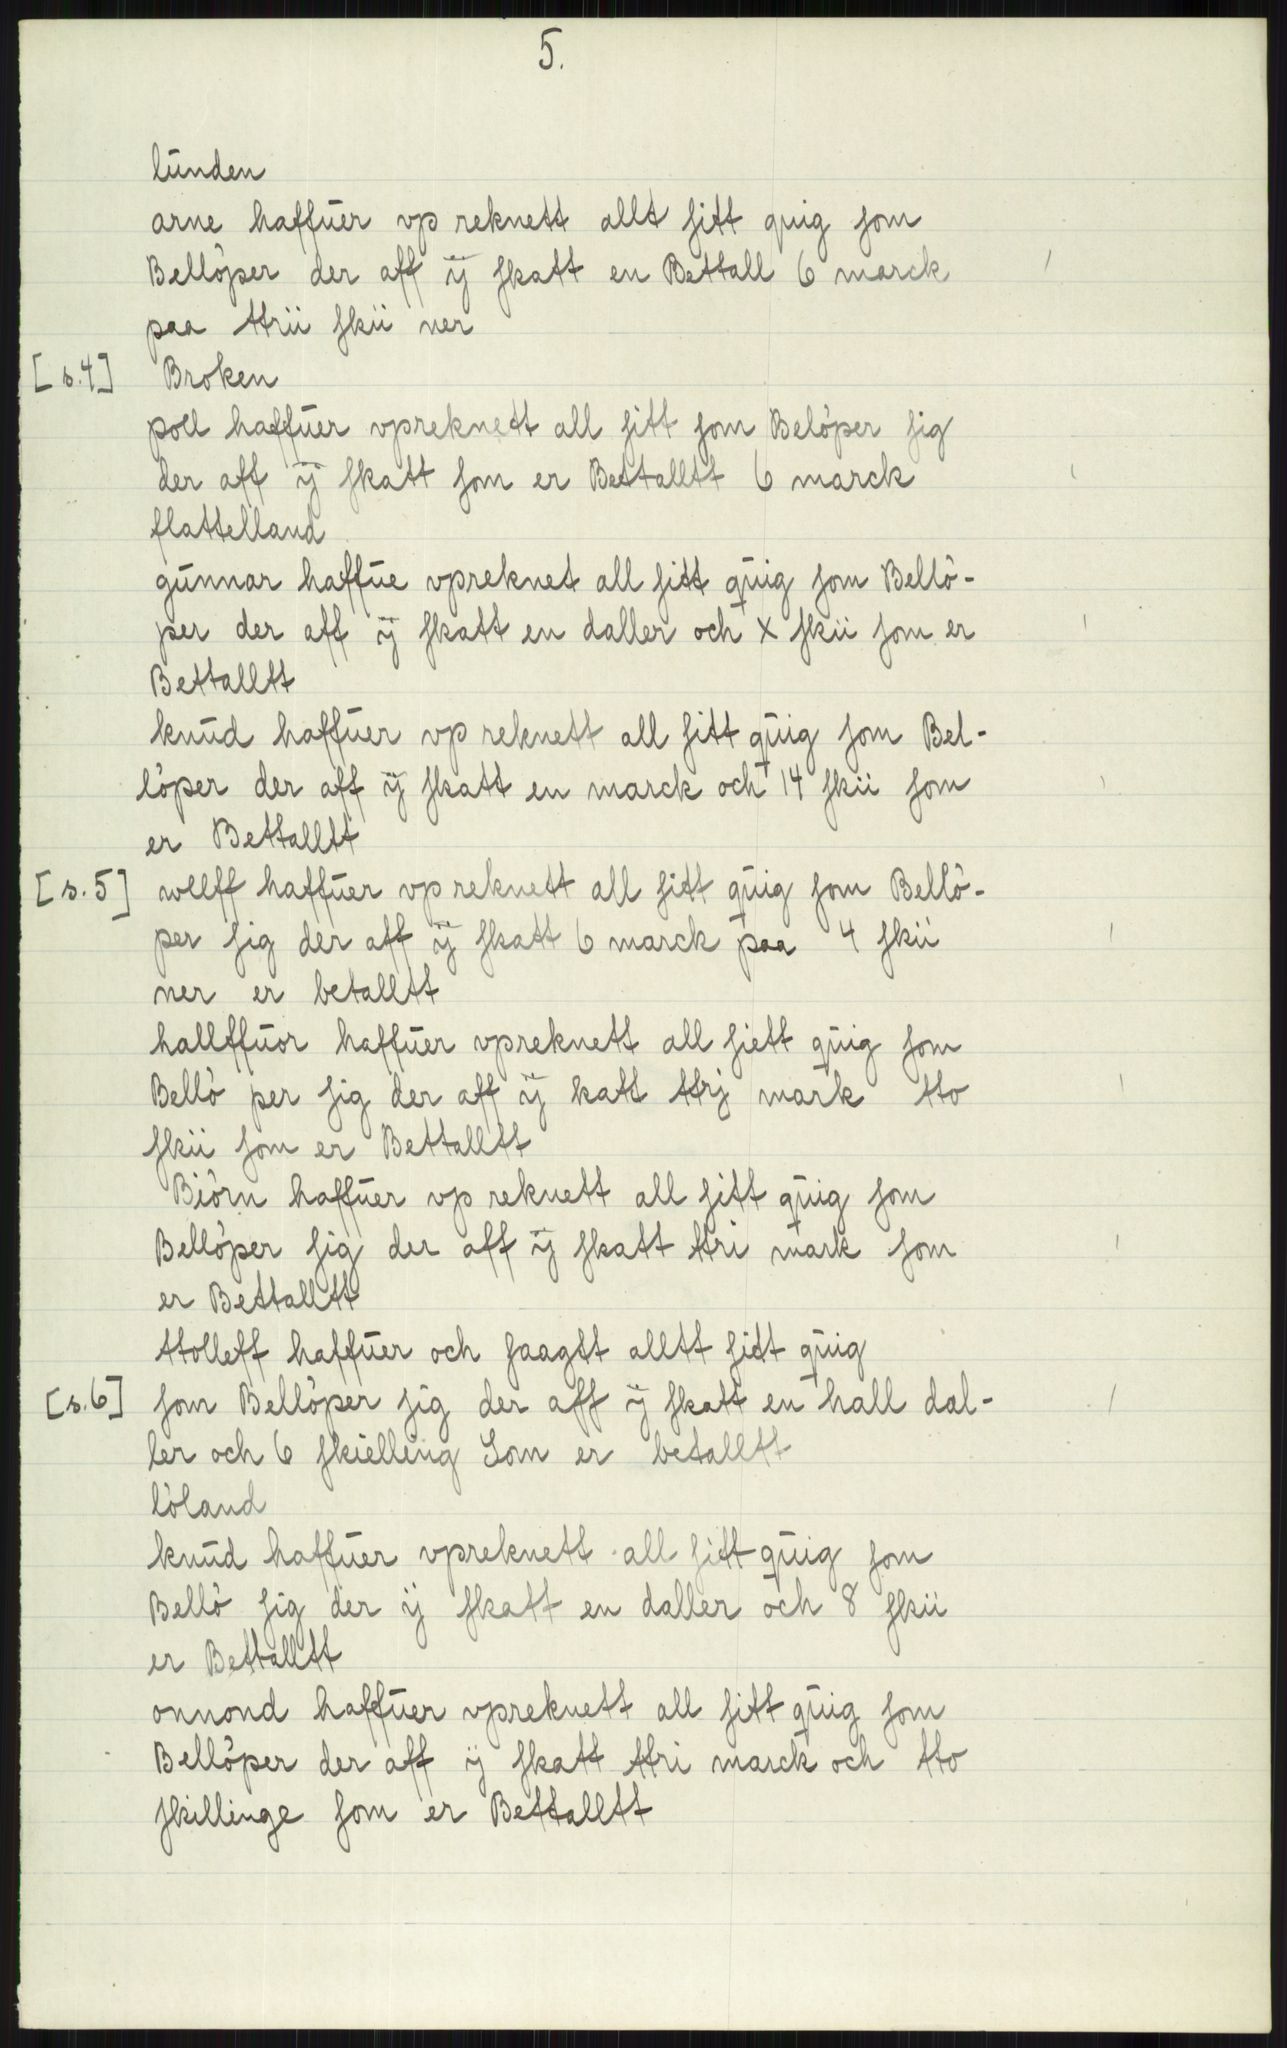 5.
lunden
arne haffuer vp reknett allt sitt quig som
Bellöper der aff ij skatt en Bettall 6 marck
paa ttrii skii ner
[s.4] Broken
poll haffuer vpreknett all sitt som Belöper sig
der aff ij skatt som er Bettalltt 6 marck
flattelland
gunnar haffue vpreknet all sitt quig som Bellö-
per der aff ij skatt en daller och x skii som er
Bettalltt
knud haffuer vp reknett all sitt quig som Bel-
löper der aff ij skatt en marck och 14 skii som
er Bettalltt
[s. 5] wllff haffuer vp reknett all sitt quig som Bellö-
per sig der aff ij skatt 6 marck paa 4 skii
ner er betalltt
hallffuor haffuer vpreknett all siett quig som
Bellö per sig der aff ij katt ttrj mark tto
skii som er Bettalltt
Biörn haffuer vp reknett all sitt quig som
Bellöper sig der aff ij skatt ttri mark som
er Bettalltt
ttolleff haffuer och saagtt alltt sitt quig
[s.6] som Bellöper sig der aff ij skatt en hall dal-
ler och 6 skielling Som er betalltt
löland
knud haffuer vpreknett all sitt quig som
Bellö sig der ij skatt en daller och 8 skii
er Bettalltt
onnond haffuer vpreknett all sitt quig som
Bellöper der aff ij skatt ttri marck och tto
skillinge som er Bettalltt